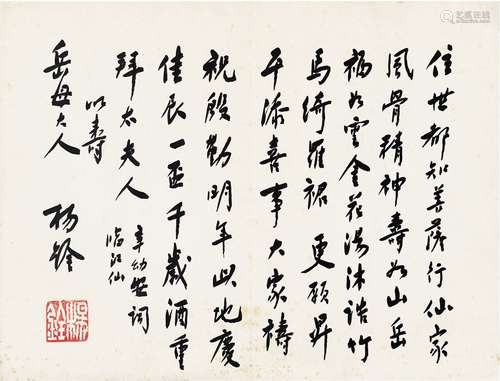 住世都知菩薩行仙家
風骨精神壽如山岳
福如雲金花湯沐誥竹
馬綺羅裙 更願昇
平添喜事大家禱
祝殷勤明年此地慶
佳辰一盃千歲酒重
拜太夫人 辛幼安詞
臨江仙
以壽
岳母大人 楊銓
楊銓